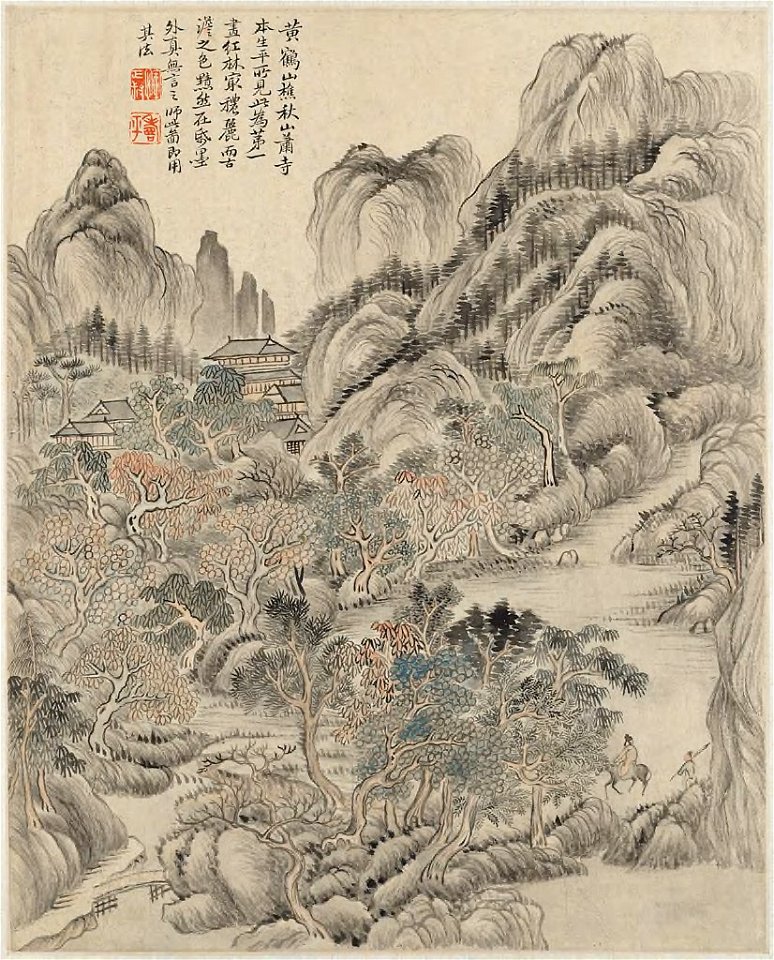 黄鶴山樵秋山蕭寺
本生平所見此為第一
畫紅林最穠麗而古
澹之色黯然在紙墨
外真無言之師此圖即用
其法